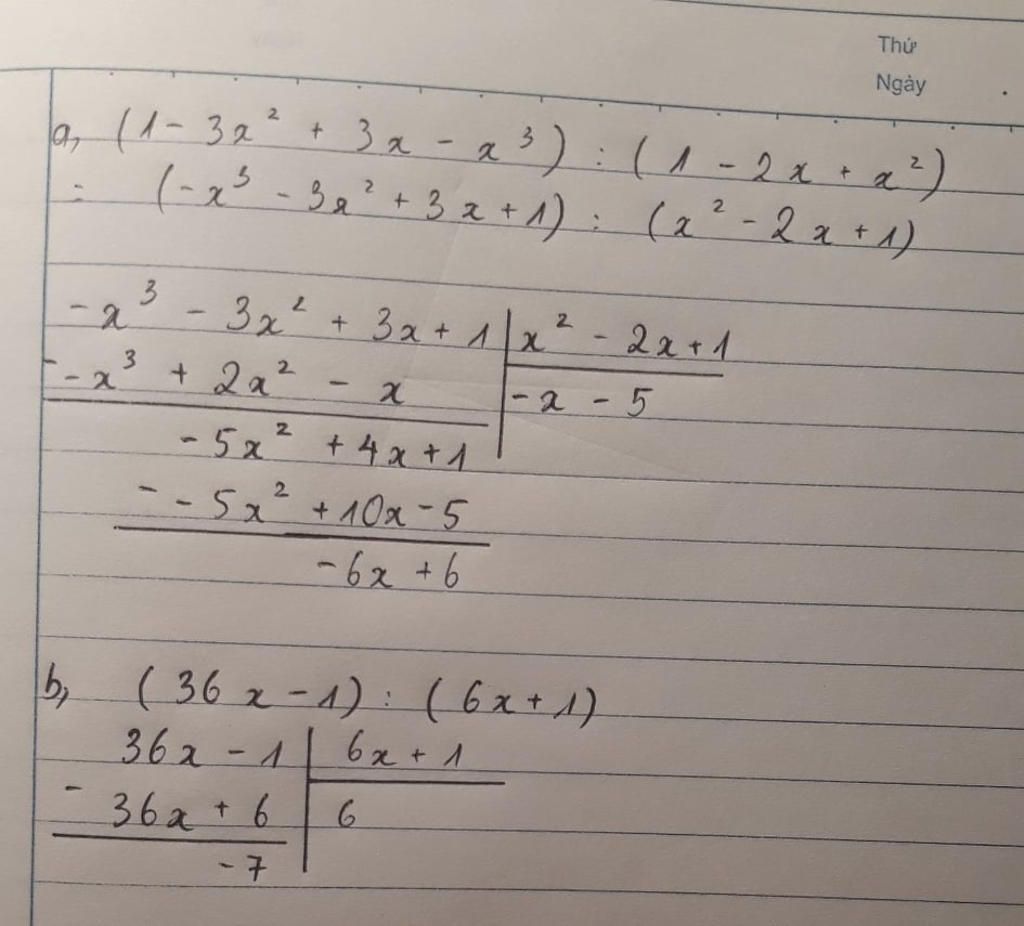 Thứ
Ngày
a, (1 - 3x² + 3x - x³) : (1 - 2x + x²)
= (-x³ - 3x² + 3x + 1) : (x² - 2x + 1)
-x³ - 3x² + 3x + 1 | x² - 2x + 1
- -x³ + 2x² - x | -x - 5
-5x² + 4x + 1
- -5x² + 10x - 5
-6x + 6
b, (36x - 1) : (6x + 1)
36x - 1 | 6x + 1
- 36x + 6 | 6
-7